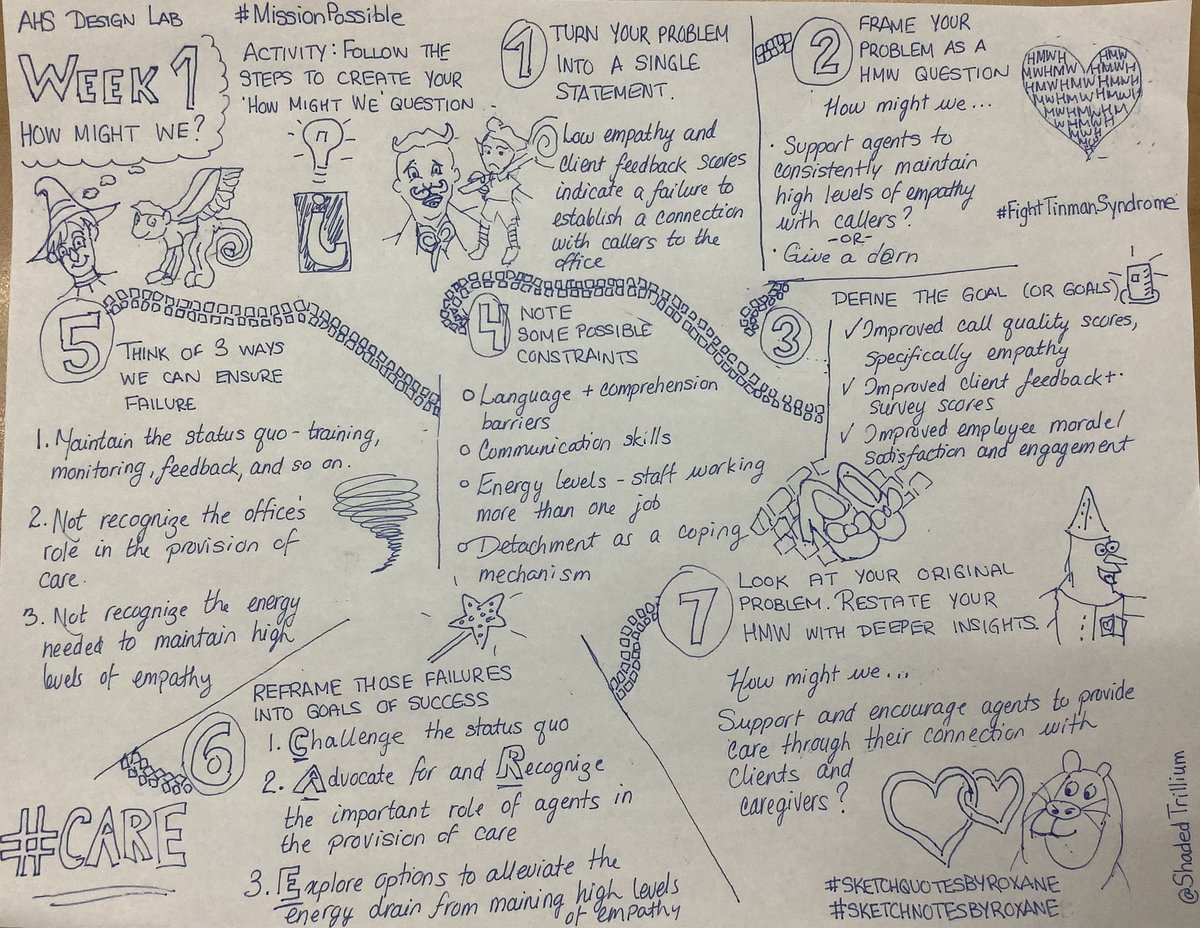 AHS DESIGN LAB
WEEK 1
HOW MIGHT WE?
#MISSIONPOSSIBLE
ACTIVITY: FOLLOW THE
STEPS TO CREATE YOUR
'HOW MIGHT WE' QUESTION
1
TURN YOUR PROBLEM
INTO A SINGLE
STATEMENT.
Low empathy and
client feedback scores
indicate a failure to
establish a connection
with callers to the
office
2
FRAME YOUR
PROBLEM AS A
HMW QUESTION
How might we...
· Support agents to
consistently maintain
high levels of empathy
with callers?
-OR-
· Give a d@rn
HMWH
#FightTinmanSyndrome
3
DEFINE THE GOAL (OR GOALS)
✓ Improved call quality scores,
specifically empathy
✓ Improved client feedback +
survey scores
✓ Improved employee morale/
satisfaction and engagement
4
NOTE
SOME POSSIBLE
CONSTRAINTS
o Language + comprehension
barriers
o Communication skills
o Energy levels - staff working
more than one job
o Detachment as a coping
mechanism
5
THINK OF 3 WAYS
WE CAN ENSURE
FAILURE
1. Maintain the status quo - training,
monitoring, feedback, and so on.
2. Not recognize the office's
role in the provision of
care.
3. Not recognize the energy
needed to maintain high
levels of empathy
6
REFRAME THOSE FAILURES
INTO GOALS OF SUCCESS
1. Challenge the status quo
2. Advocate for and Recognize
the important role of agents in
the provision of care
3. Explore options to alleviate the
energy drain from maining high levels
of empathy
#CARE
7
LOOK AT YOUR ORIGINAL
PROBLEM. RESTATE YOUR
HMW WITH DEEPER INSIGHTS.
How might we...
Support and encourage agents to provide
care through their connection with
clients and
caregivers?
#SKETCHQUOTESBYROXANE
#SKETCHNOTESBYROXANE
@ShadedTrillium